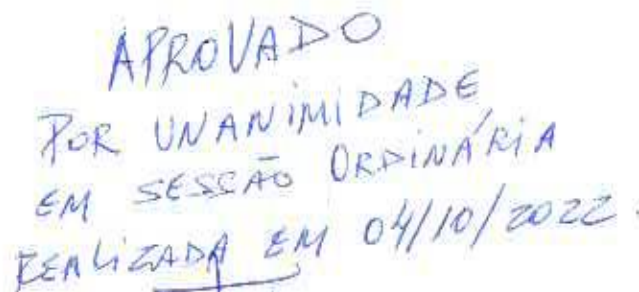 APROVADO
POR UNANIMIDADE
EM SESSÃO ORDINÁRIA
REALIZADA EM 04/10/2022.